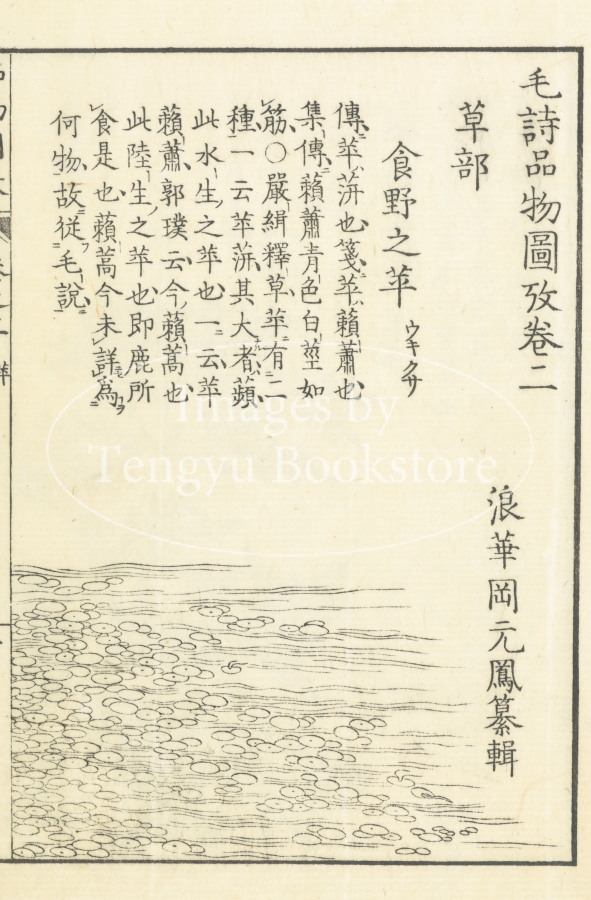 毛詩品物圖攷卷二
草部
浪華岡元鳳纂輯
食野之苹
ウキクサ
傳苹蓱也箋苹藾蕭也
集傳藾蕭青色白莖如
筋○嚴緝釋草苹有二
種一云苹蓱其大者蘋
此水生之苹也一云苹
藾蕭郭璞云今藾蒿也
此陸生之苹也即鹿所
食是也藾蒿今未詳爲
何物故從毛說
Images by
Tengyu Bookstore